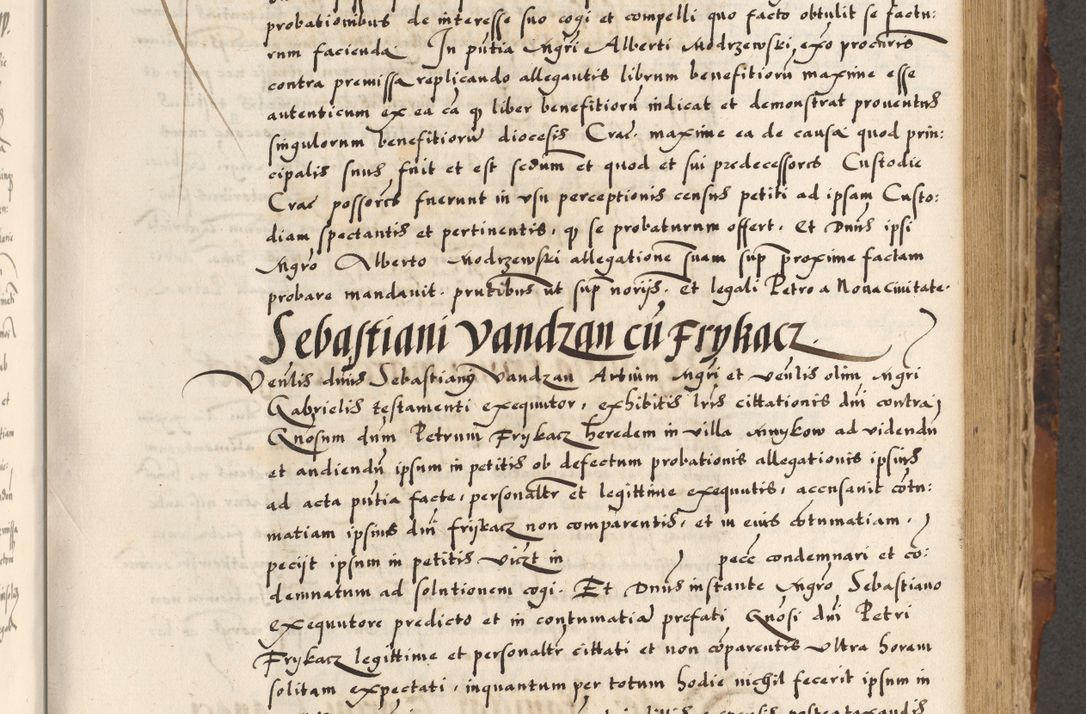 probationibus de interesse suo cogi et compelli quo facto obtulit se factu:
rum facienda. In pūtia Mgri Alberti Modrzewski, exō procuris
contra premissa replicando allegantis librum benefitiorū maxime esse
autenticum ex ea cā q liber benefitiorū indicat et demonstrat proventus
singulorum benefitiorū diocesis Crac. maxime ea de causa quod prin:
cipalis suus fuit et est sedum et quod et sui predecessores Custodie
Crac possores fuerunt in usu perceptionis census petiti ad ipsam Custo:
diam spectantis et pertinentis, q se probaturum offert. Et Dnus ipsi
Mgro Alberto Modrzewski allegationē suam sup proxime factam
probare mandavit. pntibus ut sup norijs. Et legali Petro a Nova civitate.
Sebastiani Vandzan cū Frykacz
Venlis dnus Sebastianus Vandzan Artium Mgri et venlis olim Mgri
Gabrielis testamenti exequutor, exhibitis lris cittationis dni contra
Gnosum dnm Petrum Frykacz heredem in villa Mnykow ad videndū
et audiendū ipsum in petitis ob defectum probationis allegationis ipsius
ad acta pūtia facte, personaltr et legittime exequutis, accusavit cōtu:
matiam ipsius dni frijkacz non comparentis, et in eius cōtumatiam,
pecijt ipsum in petitis vict in pecc condemnari et cō:
demnatum ad solutionem cogi. Et Dnus instante Mgro Sebastiano
exequutore predicto et in contumatia prefati Gnosi dni Petri
Frykacz legittime et personaltr cittati et non cōparentis ultra horam
solitam expectati, inquantum per totum hodie nichil fecerit ipsum in